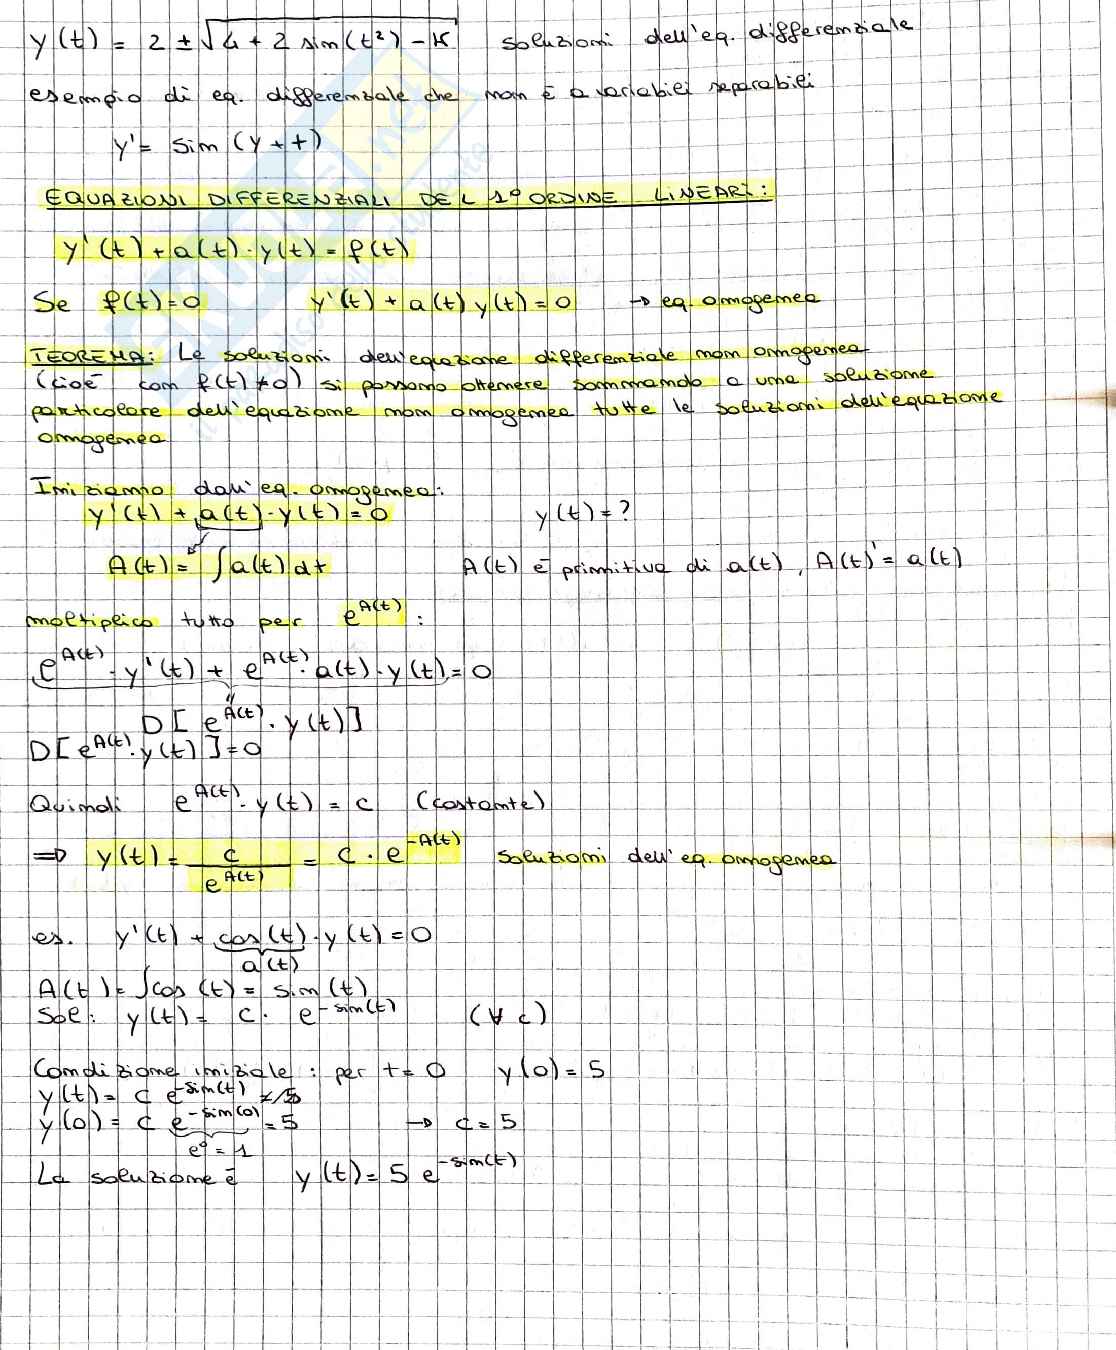 y(t) = 2 ± √(4 + 2 sin(t²) - K) soluzioni dell'eq. differenziale
esempio di eq. differenziale che non è a variabili separabili
y' = sin (y + t)
EQUAZIONI DIFFERENZIALI DEL 1° ORDINE LINEARI:
y'(t) + a(t) · y(t) = f(t)
Se f(t) = 0 y'(t) + a(t) y(t) = 0 → eq. omogenea
TEOREMA: Le soluzioni dell'equazione differenziale non omogenea
(cioè con f(t) ≠ 0) si possono ottenere sommando a una soluzione
particolare dell'equazione non omogenea tutte le soluzioni dell'equazione
omogenea
Iniziamo dall'eq. omogenea:
y'(t) + a(t) · y(t) = 0 y(t) = ?
A(t) = ∫ a(t) dt A(t) è primitiva di a(t), A(t)' = a(t)
moltiplico tutto per e^A(t) :
e^A(t) · y'(t) + e^A(t) · a(t) · y(t) = 0
"
D [ e^A(t) · y(t) ]
D [ e^A(t) · y(t) ] = 0
Quindi e^A(t) · y(t) = c (costante)
⇒ y(t) = c / e^A(t) = c · e^-A(t) soluzioni dell'eq. omogenea
es. y'(t) + cos(t) · y(t) = 0
a(t)
A(t) = ∫cos (t) = sin (t)
Sol: y(t) = c · e^-sin(t) (∀ c)
Condizione iniziale : per t = 0 y(0) = 5
y(t) = c e^-sin(t) = 5
y(0) = c e^-sin(0) = 5 → c = 5
e^0 = 1
La soluzione è y(t) = 5 e^-sin(t)